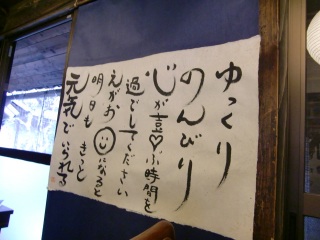 ゆっくり
のんびり
心が喜♡ぶ時間を
過でしてください
えがお☺になると
明日もきっと
元気でいられる